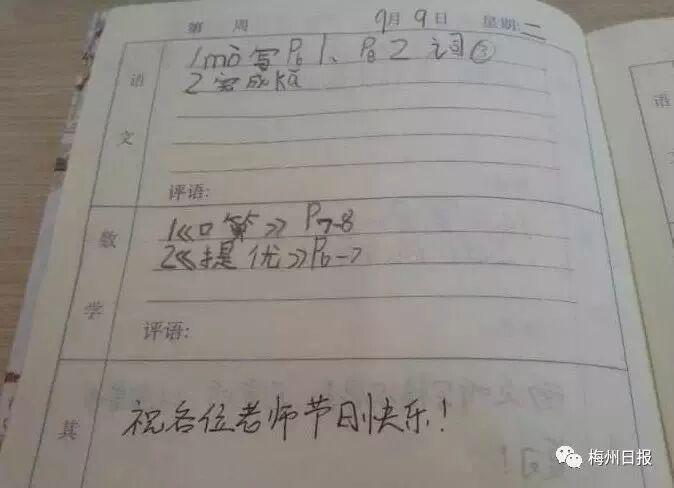 第 周 9月9日 星期:二
语文
1mò写P6 1、P8 2 词③
2完成kǎ
评语:
数学
1《口算》P7-8
2《提优》P6-7
评语:
其
祝各位老师节日快乐!
语
文
梅州日报